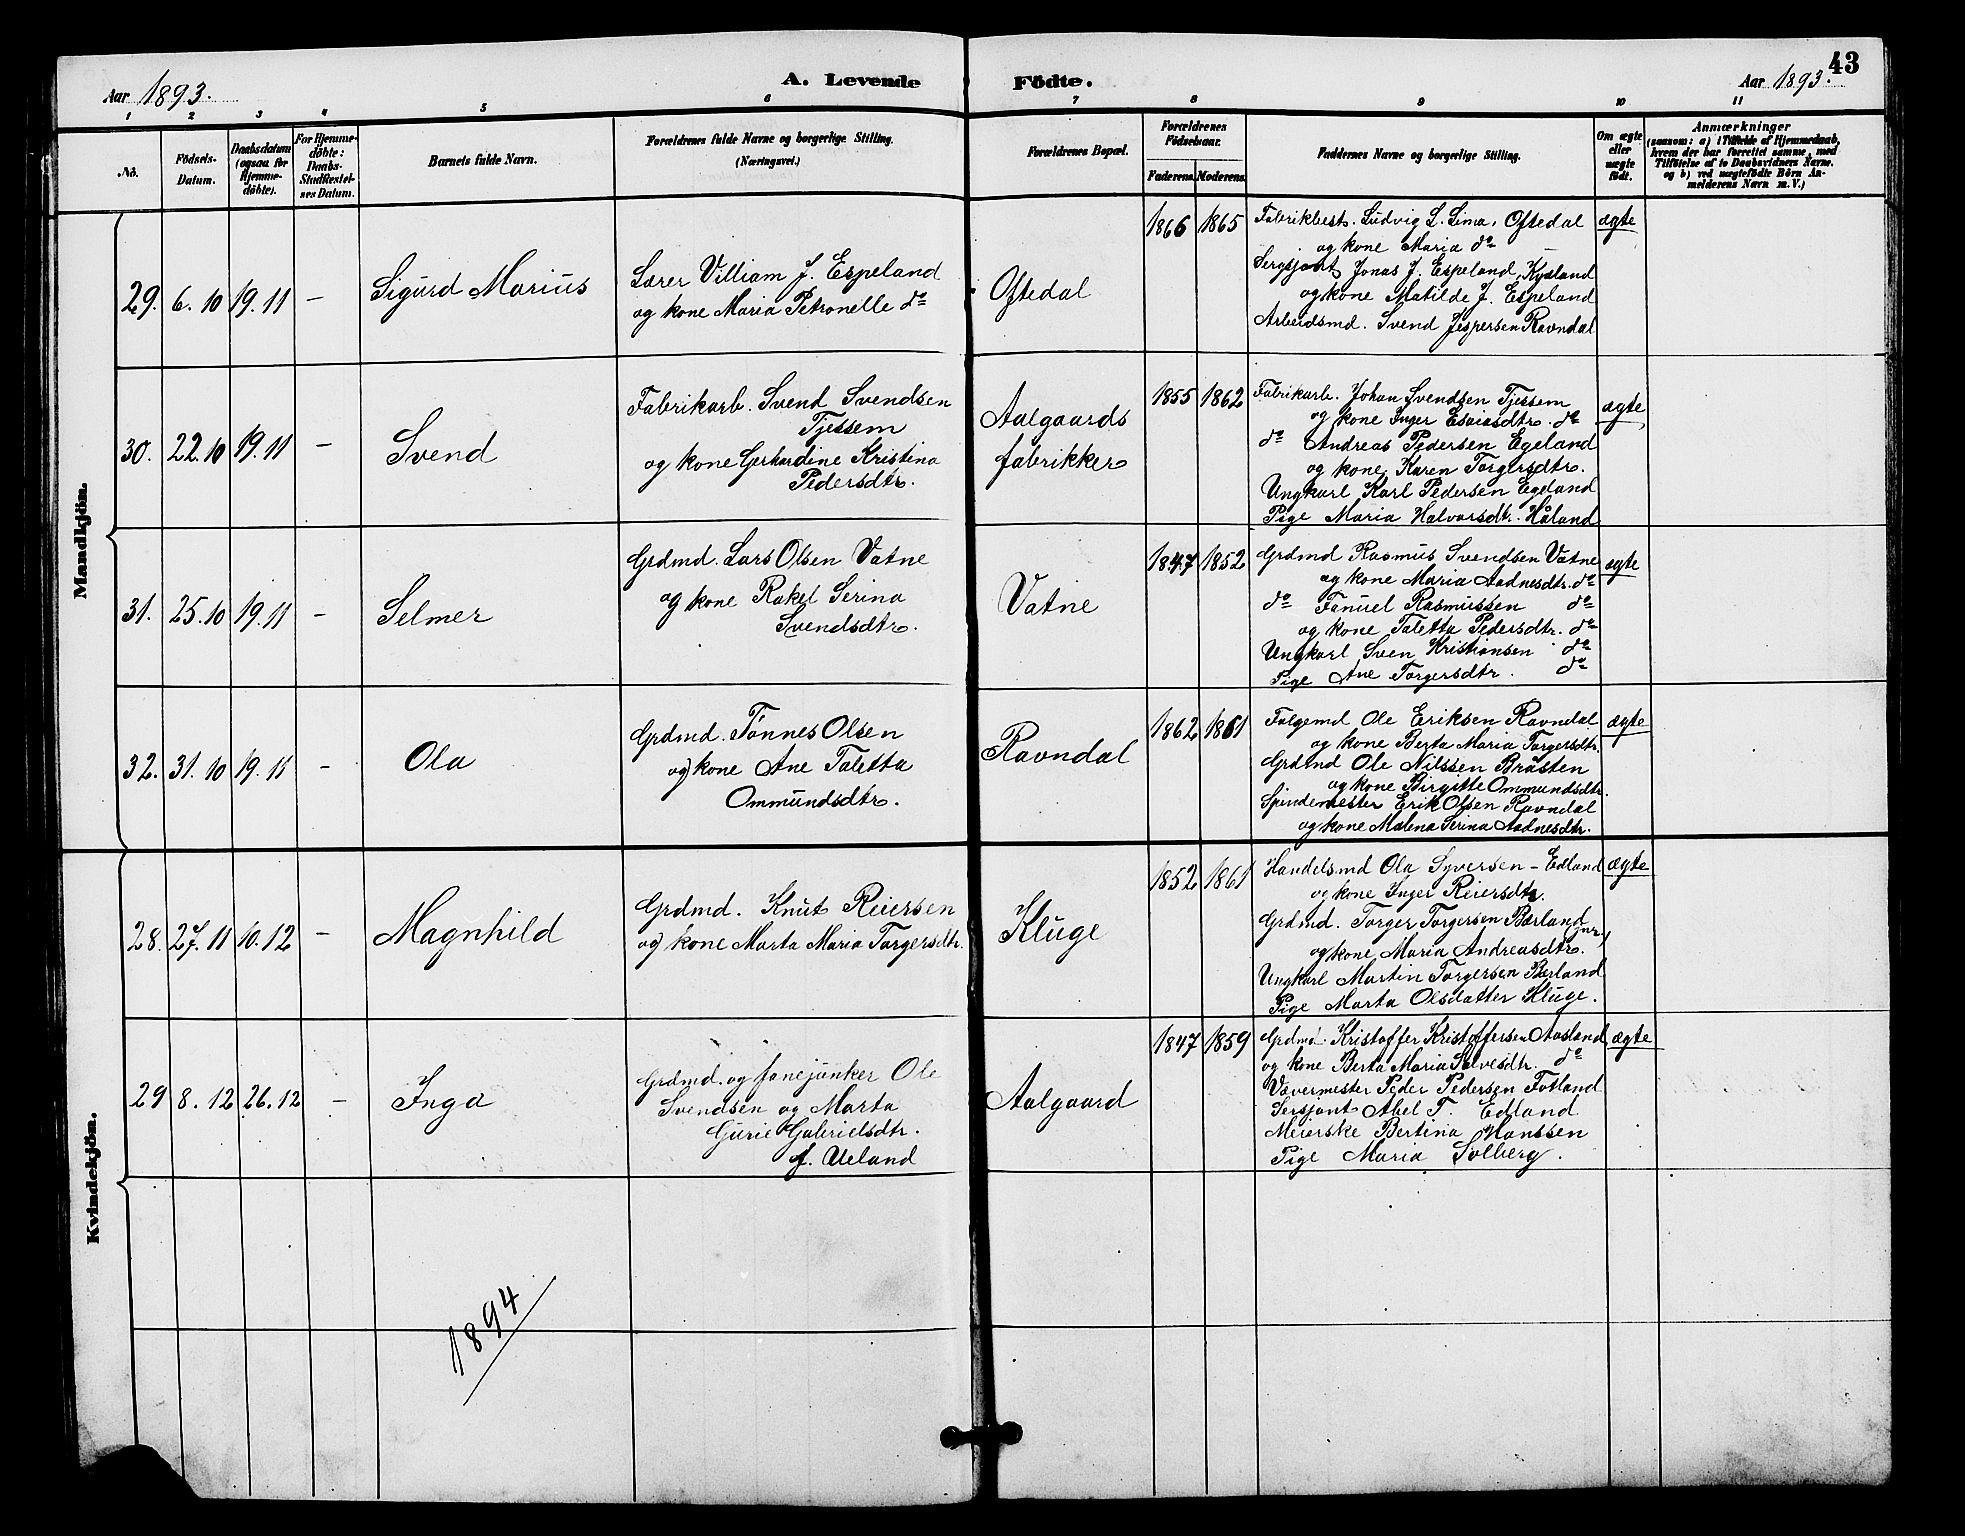 43
Aar 1893.
A. Levende Födte.
Aar 1893.
1 2 3 4 5 6 7 8 9 10 11
No.
Födsels-
Datum.
Daabsdatum
(ogsaa for
Hjemme-
döbte).
For Hjemme-
döbte:
Daabs-
Stadfæstel-
ses Datum.
Barnets fulde Navn.
Forældrenes fulde Navne og borgerlige Stilling.
(Næringsvei.)
Forældrenes Bopæl.
Forældrenes
Födselsaar.
Faderens. Moderens.
Faddernes Navne og borgerlige Stilling.
Om ægte
eller
uægte
födt.
Anmærkninger
(saasom: a) i Tilfælde af Hjemmedaab,
hvem der har forrettet samme, med
Tilföielse af to Daabsvidners Navne,
og b) ved uægtefödte Börn An-
melderens Navn m. V.)
Mandkjön.
29. 6. 10 19. 11 – Sigurd Marius
Lærer Villiam J. Espeland
og kone Maria Petronelle do
Oftedal
1866 1865
Fabrikbest. Ludvig L. Lima, Oftedal
og kone Maria do
Sergsjant Jonas J. Espeland, Kydland
og kone Matilde J. Espeland
Arbeidsmd. Svend Jespersen Ravndal
ægte
30. 22. 10 19. 11 – Svend
Fabrikarb. Svend Svendsen
Tjessem
og kone Gerhardine Kristina
Pedersdtr.
Aalgaards
fabrikker
1855 1862
Fabrikarb. Johan Svendsen Tjessem
og kone Inger Esaiasdtr. do
do Andreas Pedersen Egeland
og kone Karen Torgersdtr.
Ungkarl Karl Pedersen Egeland
Pige Maria Halvorsdtr. Håland
ægte
31. 25. 10 19. 11 – Selmer
Grdmd. Lars Olsen Vatne
og kone Rakel Serina
Svendsdtr.
Vatne
1847 1852
Grdmd Rasmus Svendsen Vatne
og kone Maria Aadnesdtr. do
do Fanuel Rasmussen do
og kone Taletta Pedersdtr. do
Ungkarl Sven Kristiansen do
Pige Ane Torgersdtr. do
ægte
32. 31. 10 19. 11 – Ola
Grdmd. Tönnes Olsen
og kone Ane Taletta
Ommundsdtr.
Ravndal
1862 1861
Folgemd Ole Eriksen Ravndal
og kone Berta Maria Torgersdtr.
Grdmd Ole Nilssen Bråsten
og kone Birgitte Ommundsdtr.
Spindemester Erik Olsen Ravndal
og kone Malena Serina Aadnesdtr.
ægte
Kvindekjön.
28. 27. 11 10. 12 – Magnhild
Grdmd. Knut Reiersen
og kone Marta Maria Torgersdtr.
Kluge
1852 1861
Handelsmd Ola Syversen – Edland
og kone Inger Reiersdtr.
Grdmd. Torger Torgersen Bærland
og kone Maria Andreasdtr.
Ungkarl Martin Torgersen Bærland
Pige Marta Olsdatter Kluge.
ægte
29 8. 12 26. 12 – Inga
Grdmd. og fanejunker Ole
Svendsen og Marta
Gurie Gabrielsdtr.
f. Ueland
Aalgaard
1847 1859
Grdmd. Kristoffer Kristoffersen Aasland
og kone Berta Maria Salvesdtr. do
Vævermester Peder Pedersen Fotland
Sersjant Abel T. Edland
Meierske Bertina Hanssen
Pige Maria Solberg.
ægte
1894